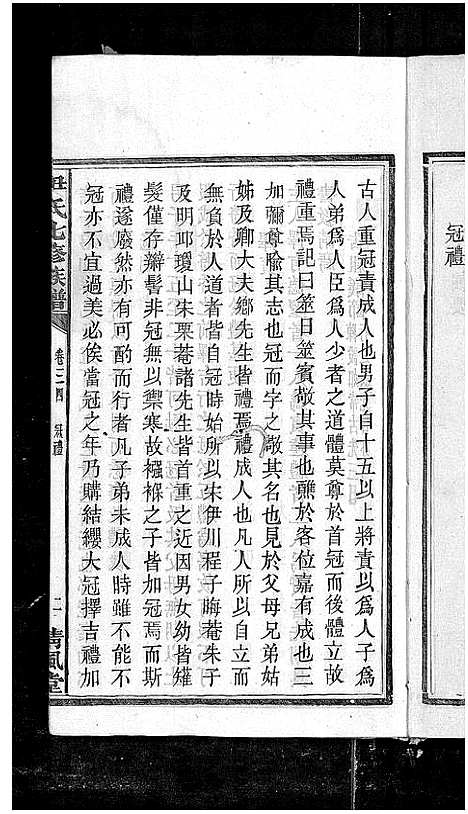 冠禮
古人重冠責成人也男子自十五以上將責以爲人子爲
人弟爲人臣爲人少者之道體莫尊於首冠而後體立故
禮重焉記曰筮日筮賓敬其事也醮於客位嘉有成也三
加彌尊喩其志也冠而字之敬其名也見於父母兄弟姑
姊及卿大夫鄉先生皆禮焉禮成人也凡人所以自立而
無負於人道者皆自冠時始所以宋伊川程子晦菴朱子
及明邱瓊山朱栗菴諸先生皆首重之近因男女幼皆䉶
髮僅存辮髻非冠無以禦寒故襁褓之子皆加冠焉而斯
禮遂廢然亦有可酌而行者凡子弟未成人時雖不能不
冠亦不宜過美必俟當冠之年乃購結纓大冠擇吉禮加
氏七修族譜
卷三之四
冠禮
二
清風堂